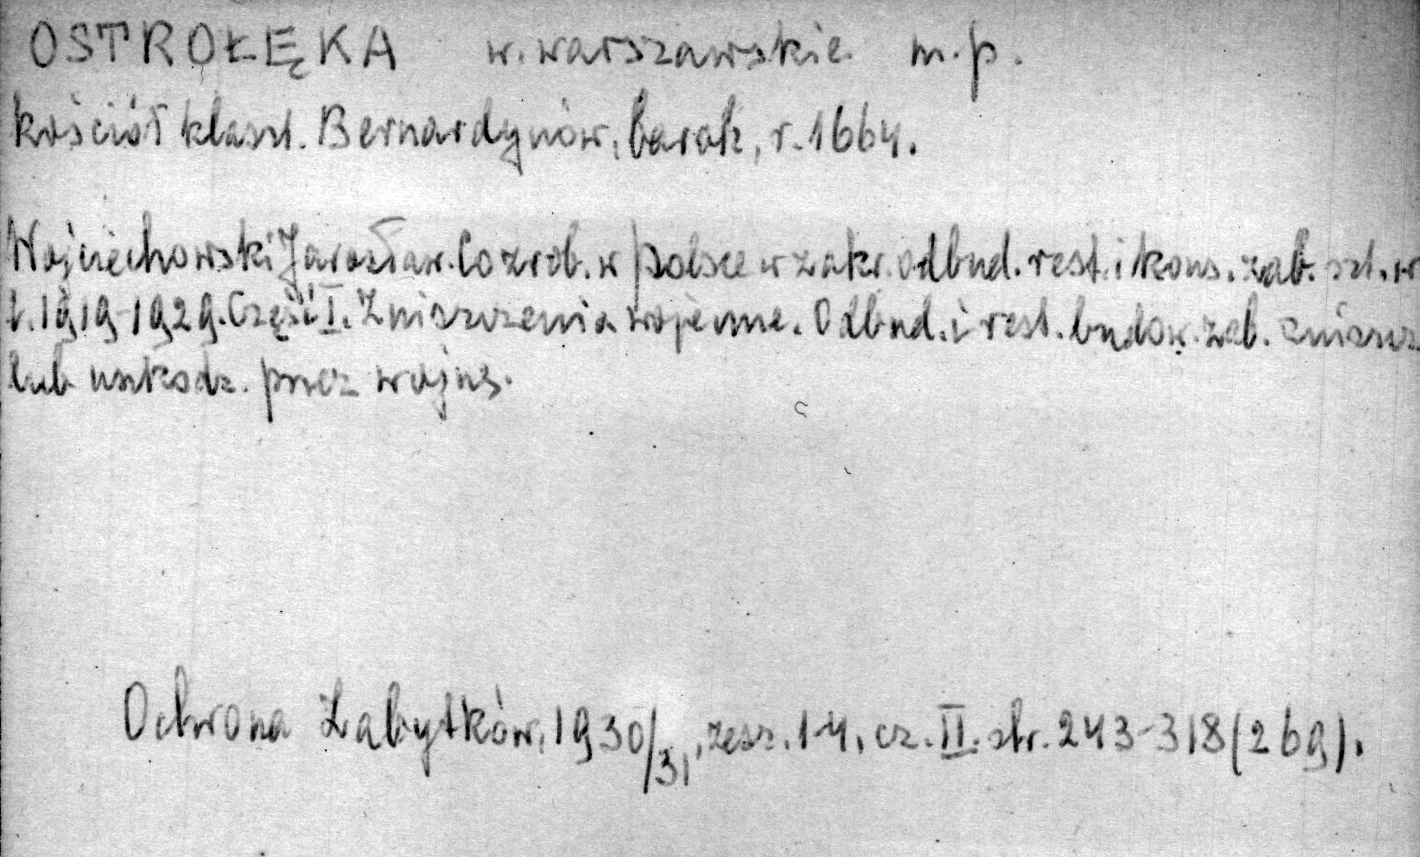 OSTROŁĘKA w. warszawskie m. p.
kościół klaszt. Bernardynów, barok, r. 1664.
Wojciechowski Jarosław. Co zrob. w Polsce w zakr. odbud. rest. i kons. zab. szt. w
l. 1919-1929. Część I. Zniszczenia wojenne. Odbud. i rest. budow. zab. zniszcz
lub uszkodz. przez wojnę.
Ochrona Zabytków, 1930/31, zesz. 1-4, cz. II. str. 243-318 (269).